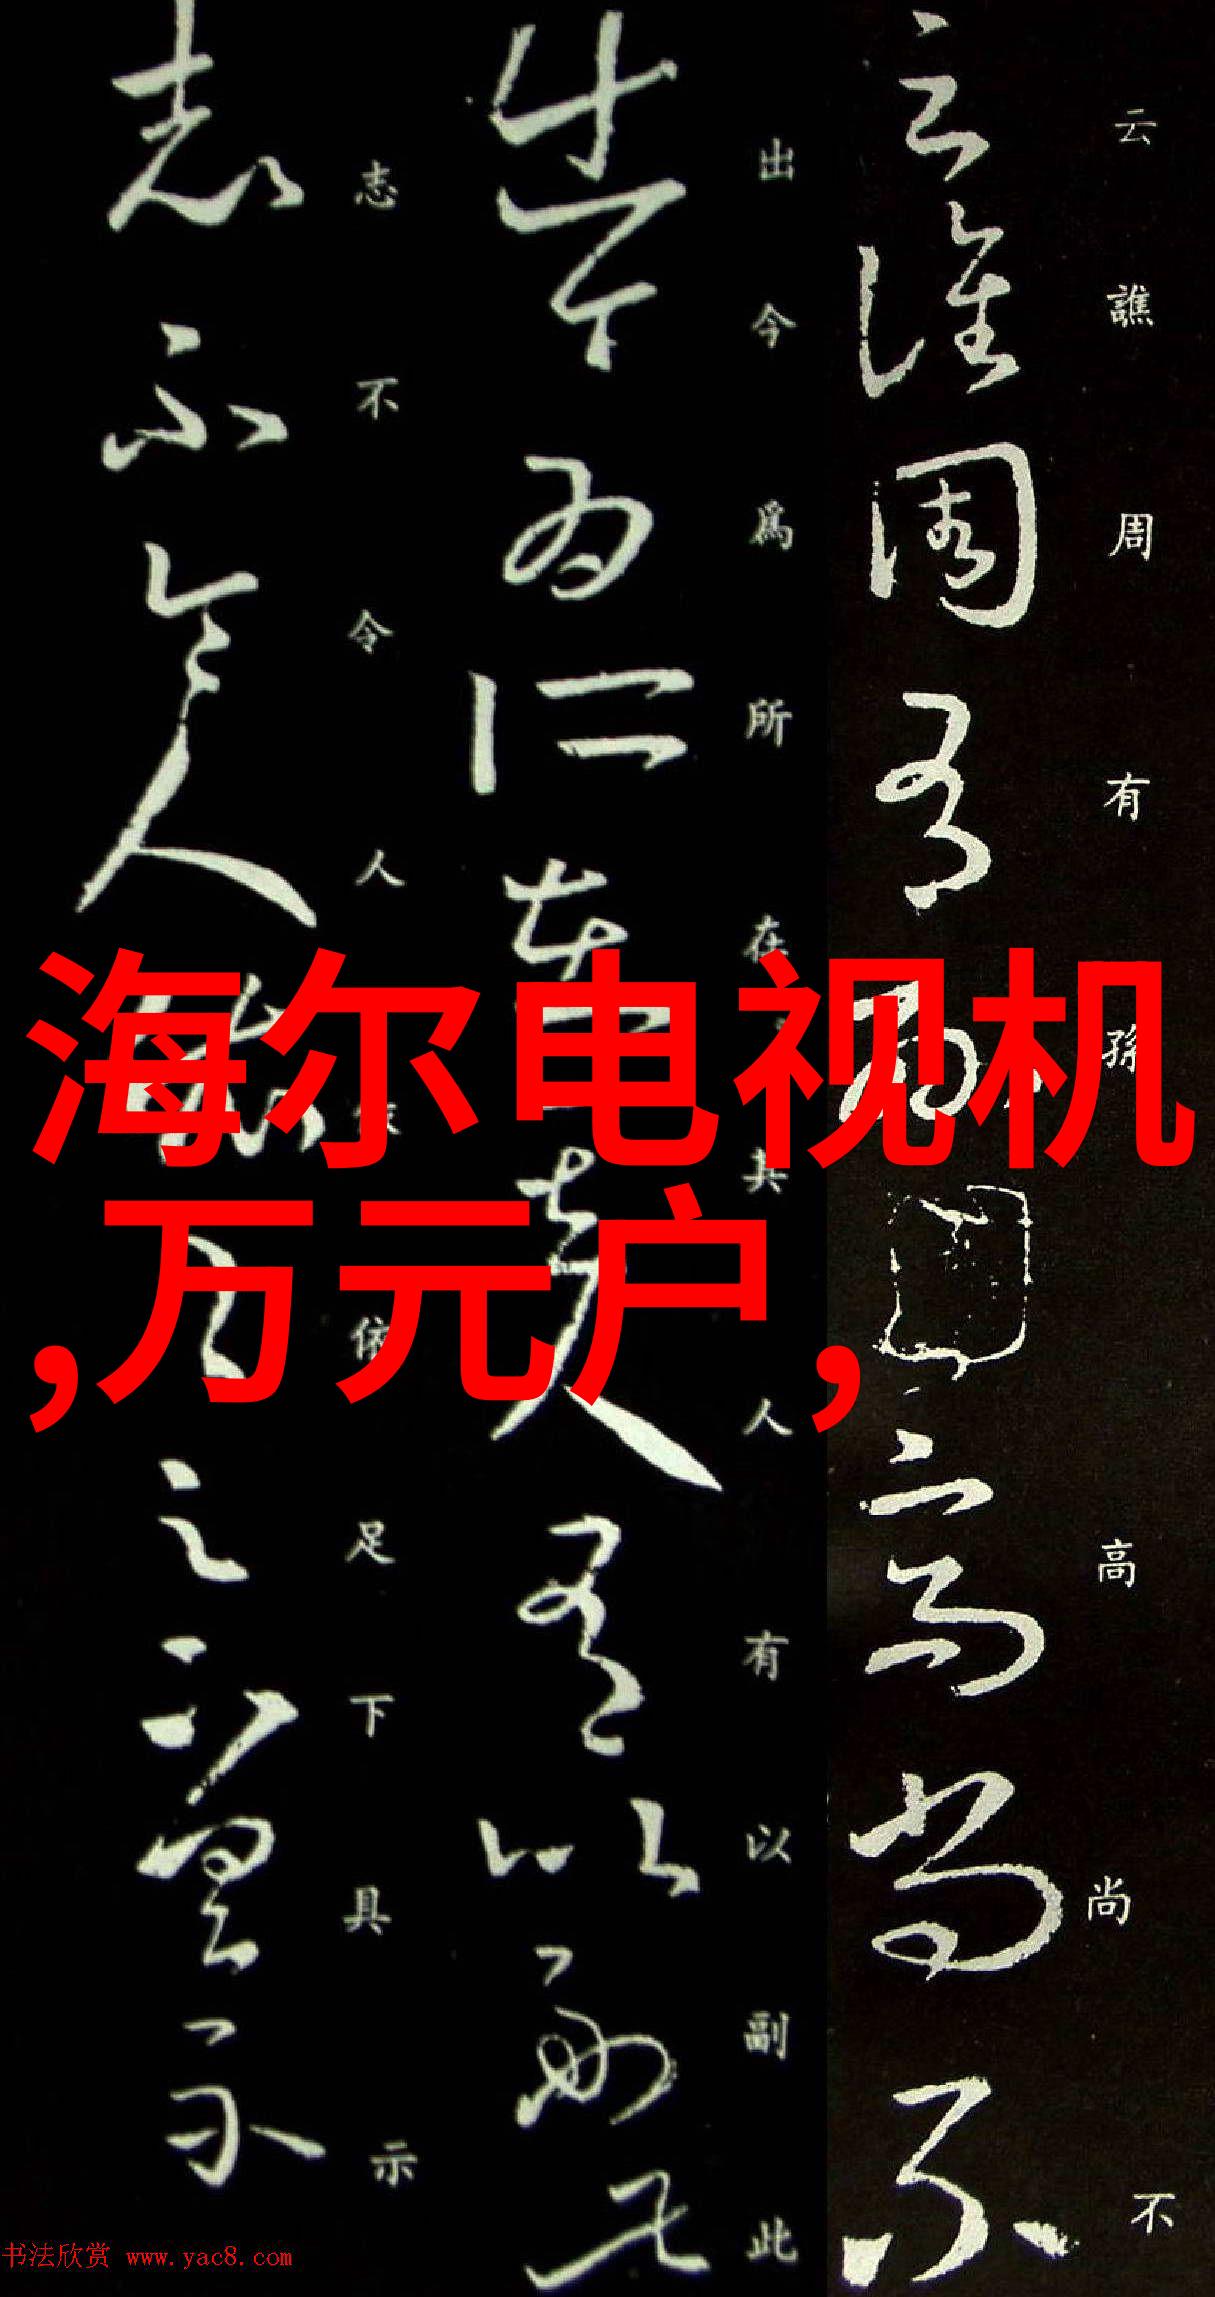 云譙周有孫高尚不
出今為所在其人有以副此
志不令人依依足下具示
海尔电视机
,万元户,
书法欣赏 www.yac8.com